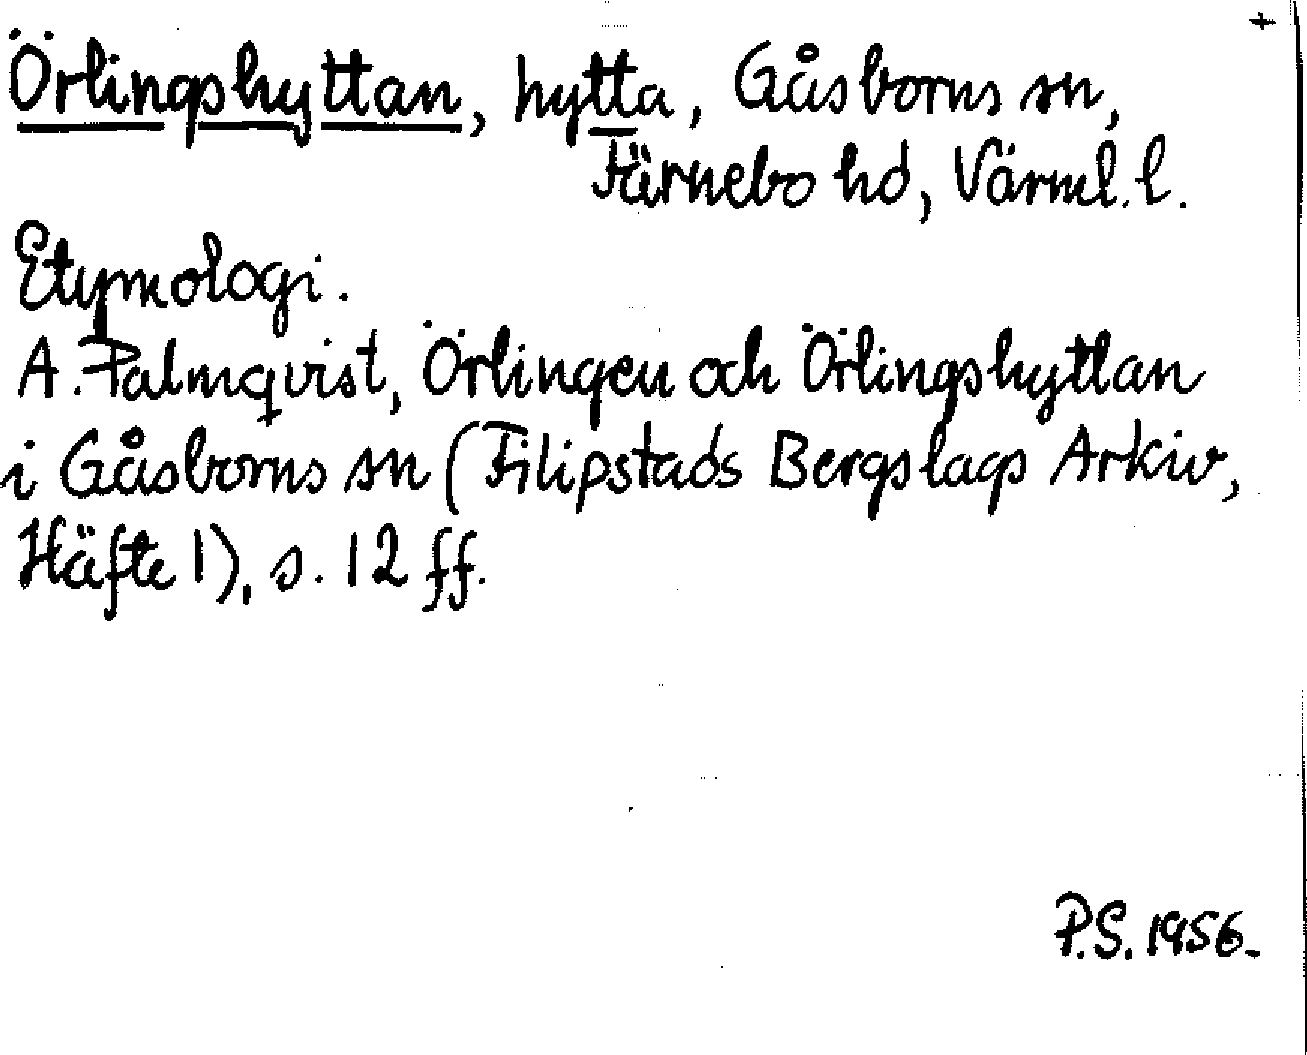 +
Örlingshyttan, hytta, Gåsborns sn,
Färnebo hd, Värml. l.
Etymologi.
A. Palmqvist, Örlingen och Örlingshyttan
i Gåsborns sn (Filipstads Bergslags Arkiv,
Häfte 1), s. 12 ff.
P.S. 1956.